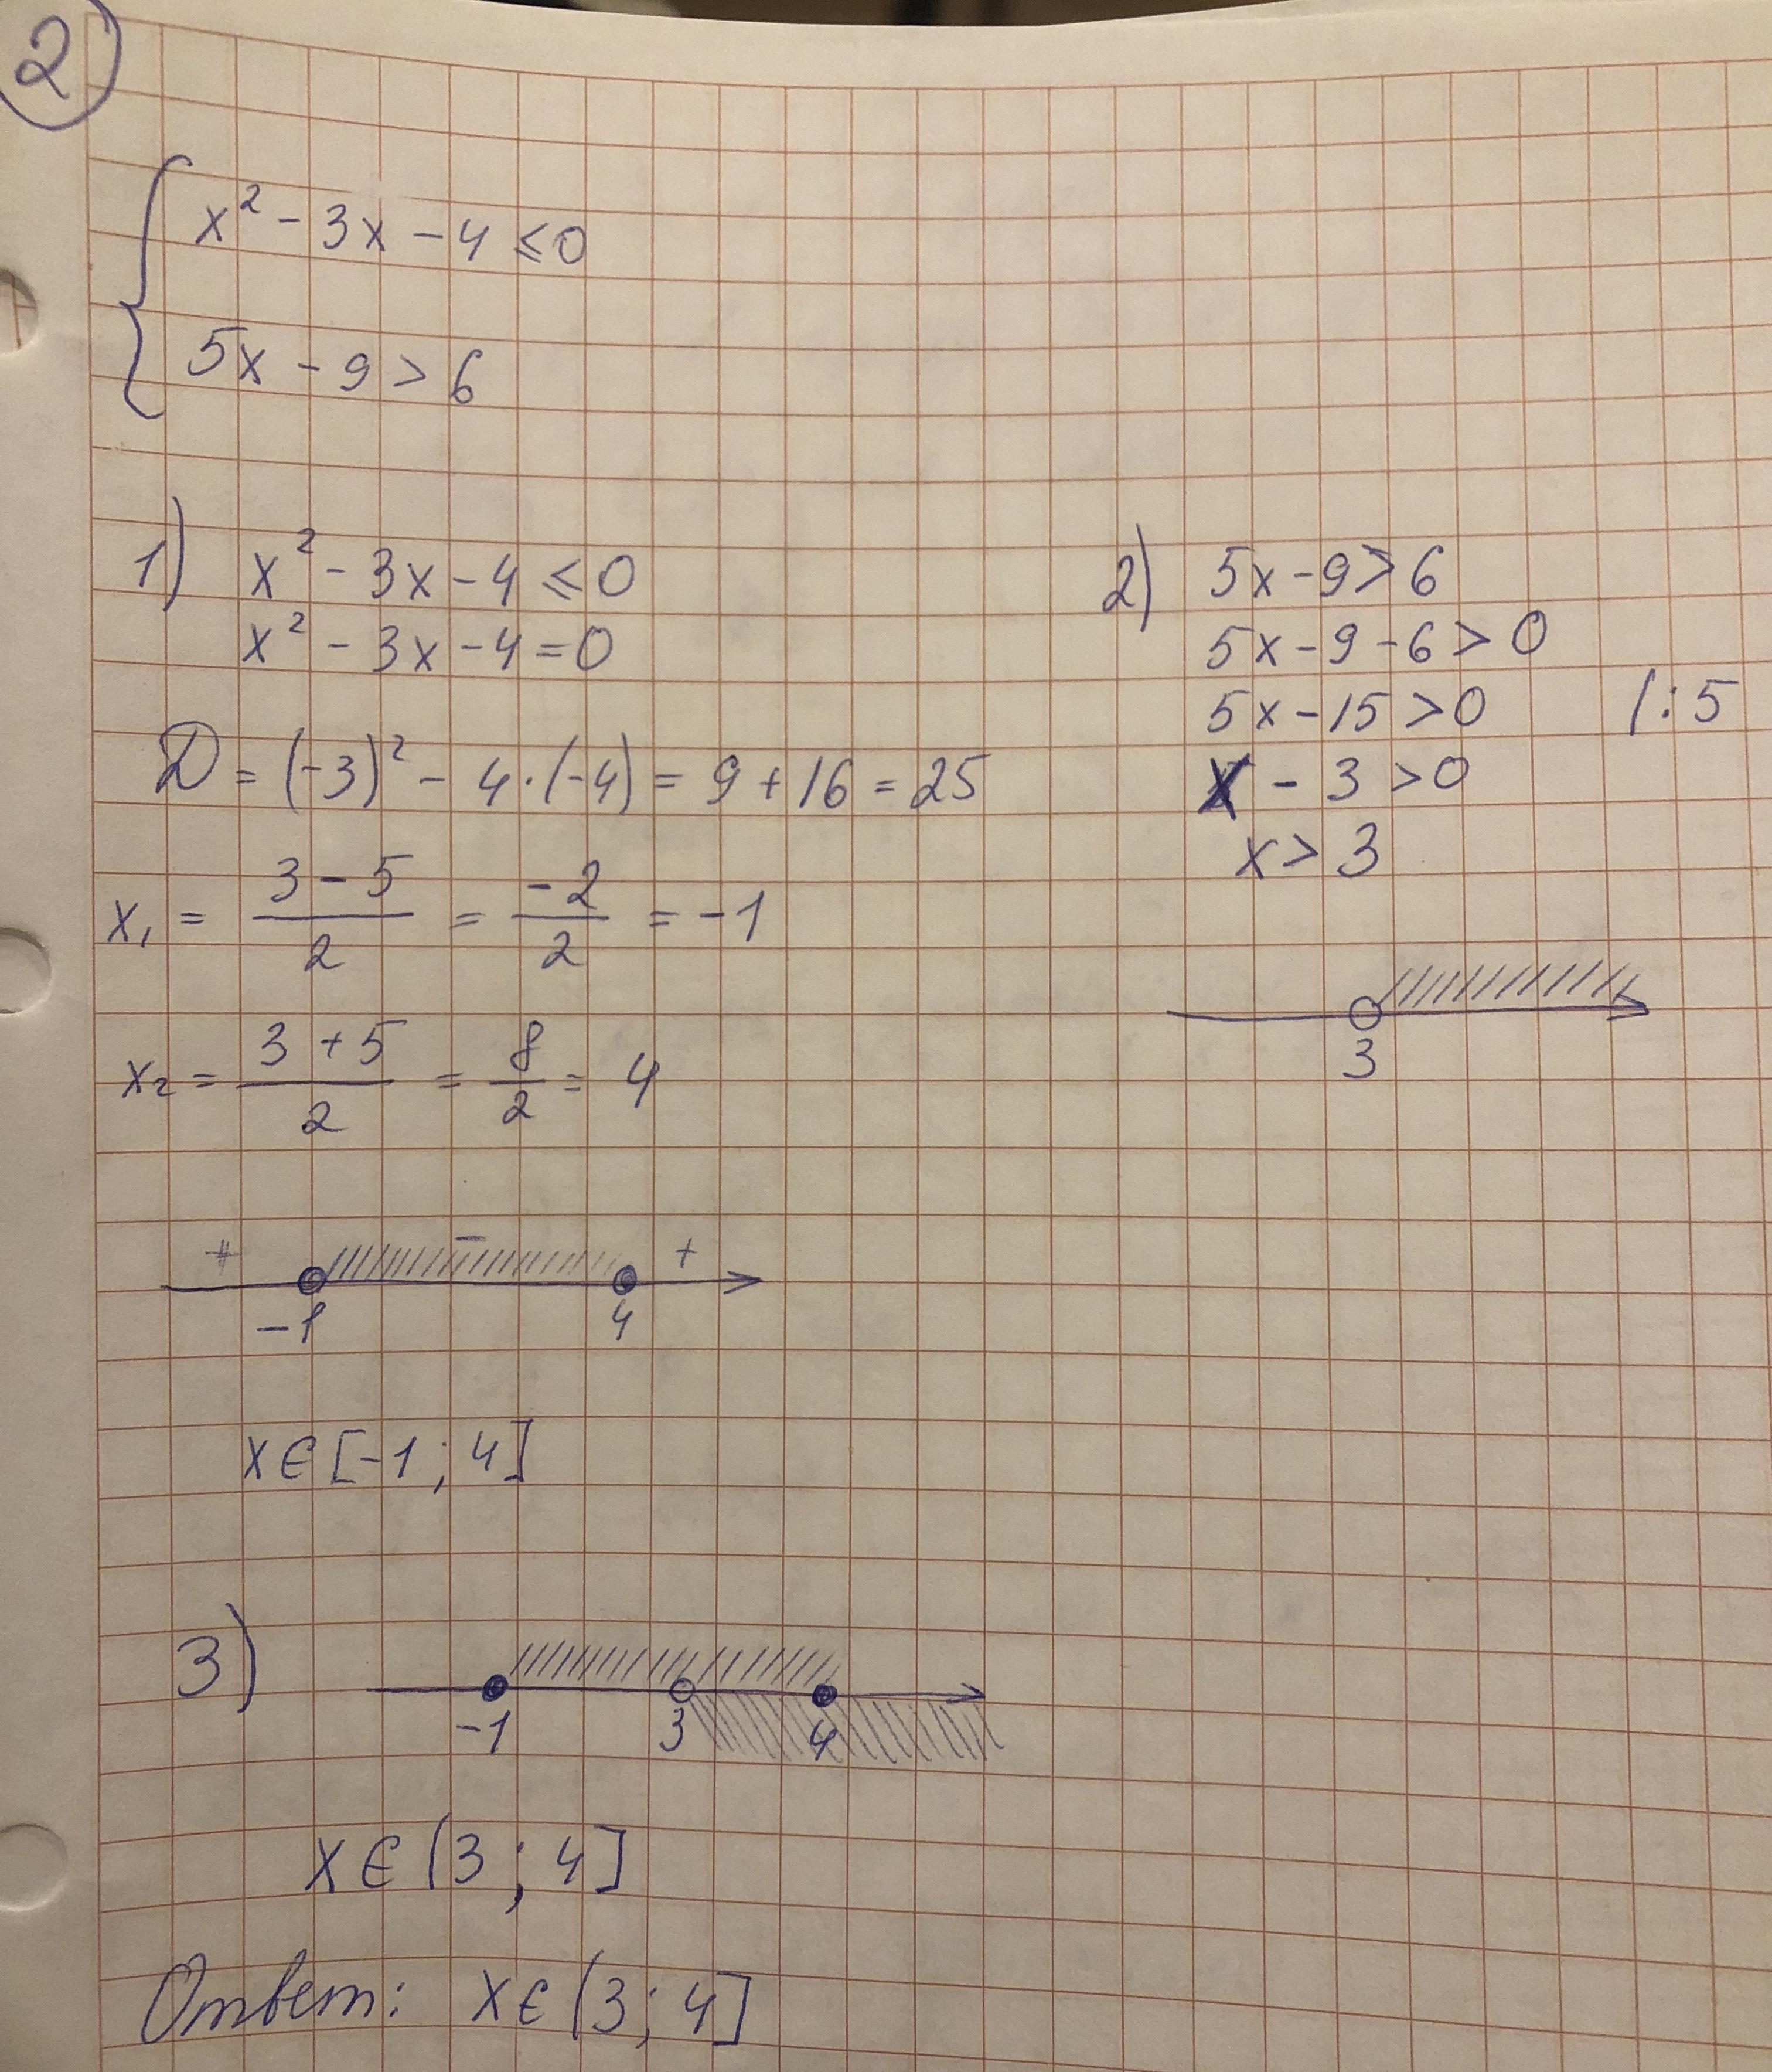 2
x² - 3x - 4 ≤ 0
5x - 9 > 6
1) x² - 3x - 4 ≤ 0
x² - 3x - 4 = 0
D = (-3)² - 4·(-4) = 9 + 16 = 25
x₁ = (3 - 5)/2 = -2/2 = -1
x₂ = (3 + 5)/2 = 8/2 = 4
+ - +
-1 4
x ∈ [-1; 4]
2) 5x - 9 > 6
5x - 9 - 6 > 0
5x - 15 > 0 /:5
x - 3 > 0
x > 3
3
3)
-1 3 4
x ∈ (3; 4]
Ответ: x ∈ (3; 4]